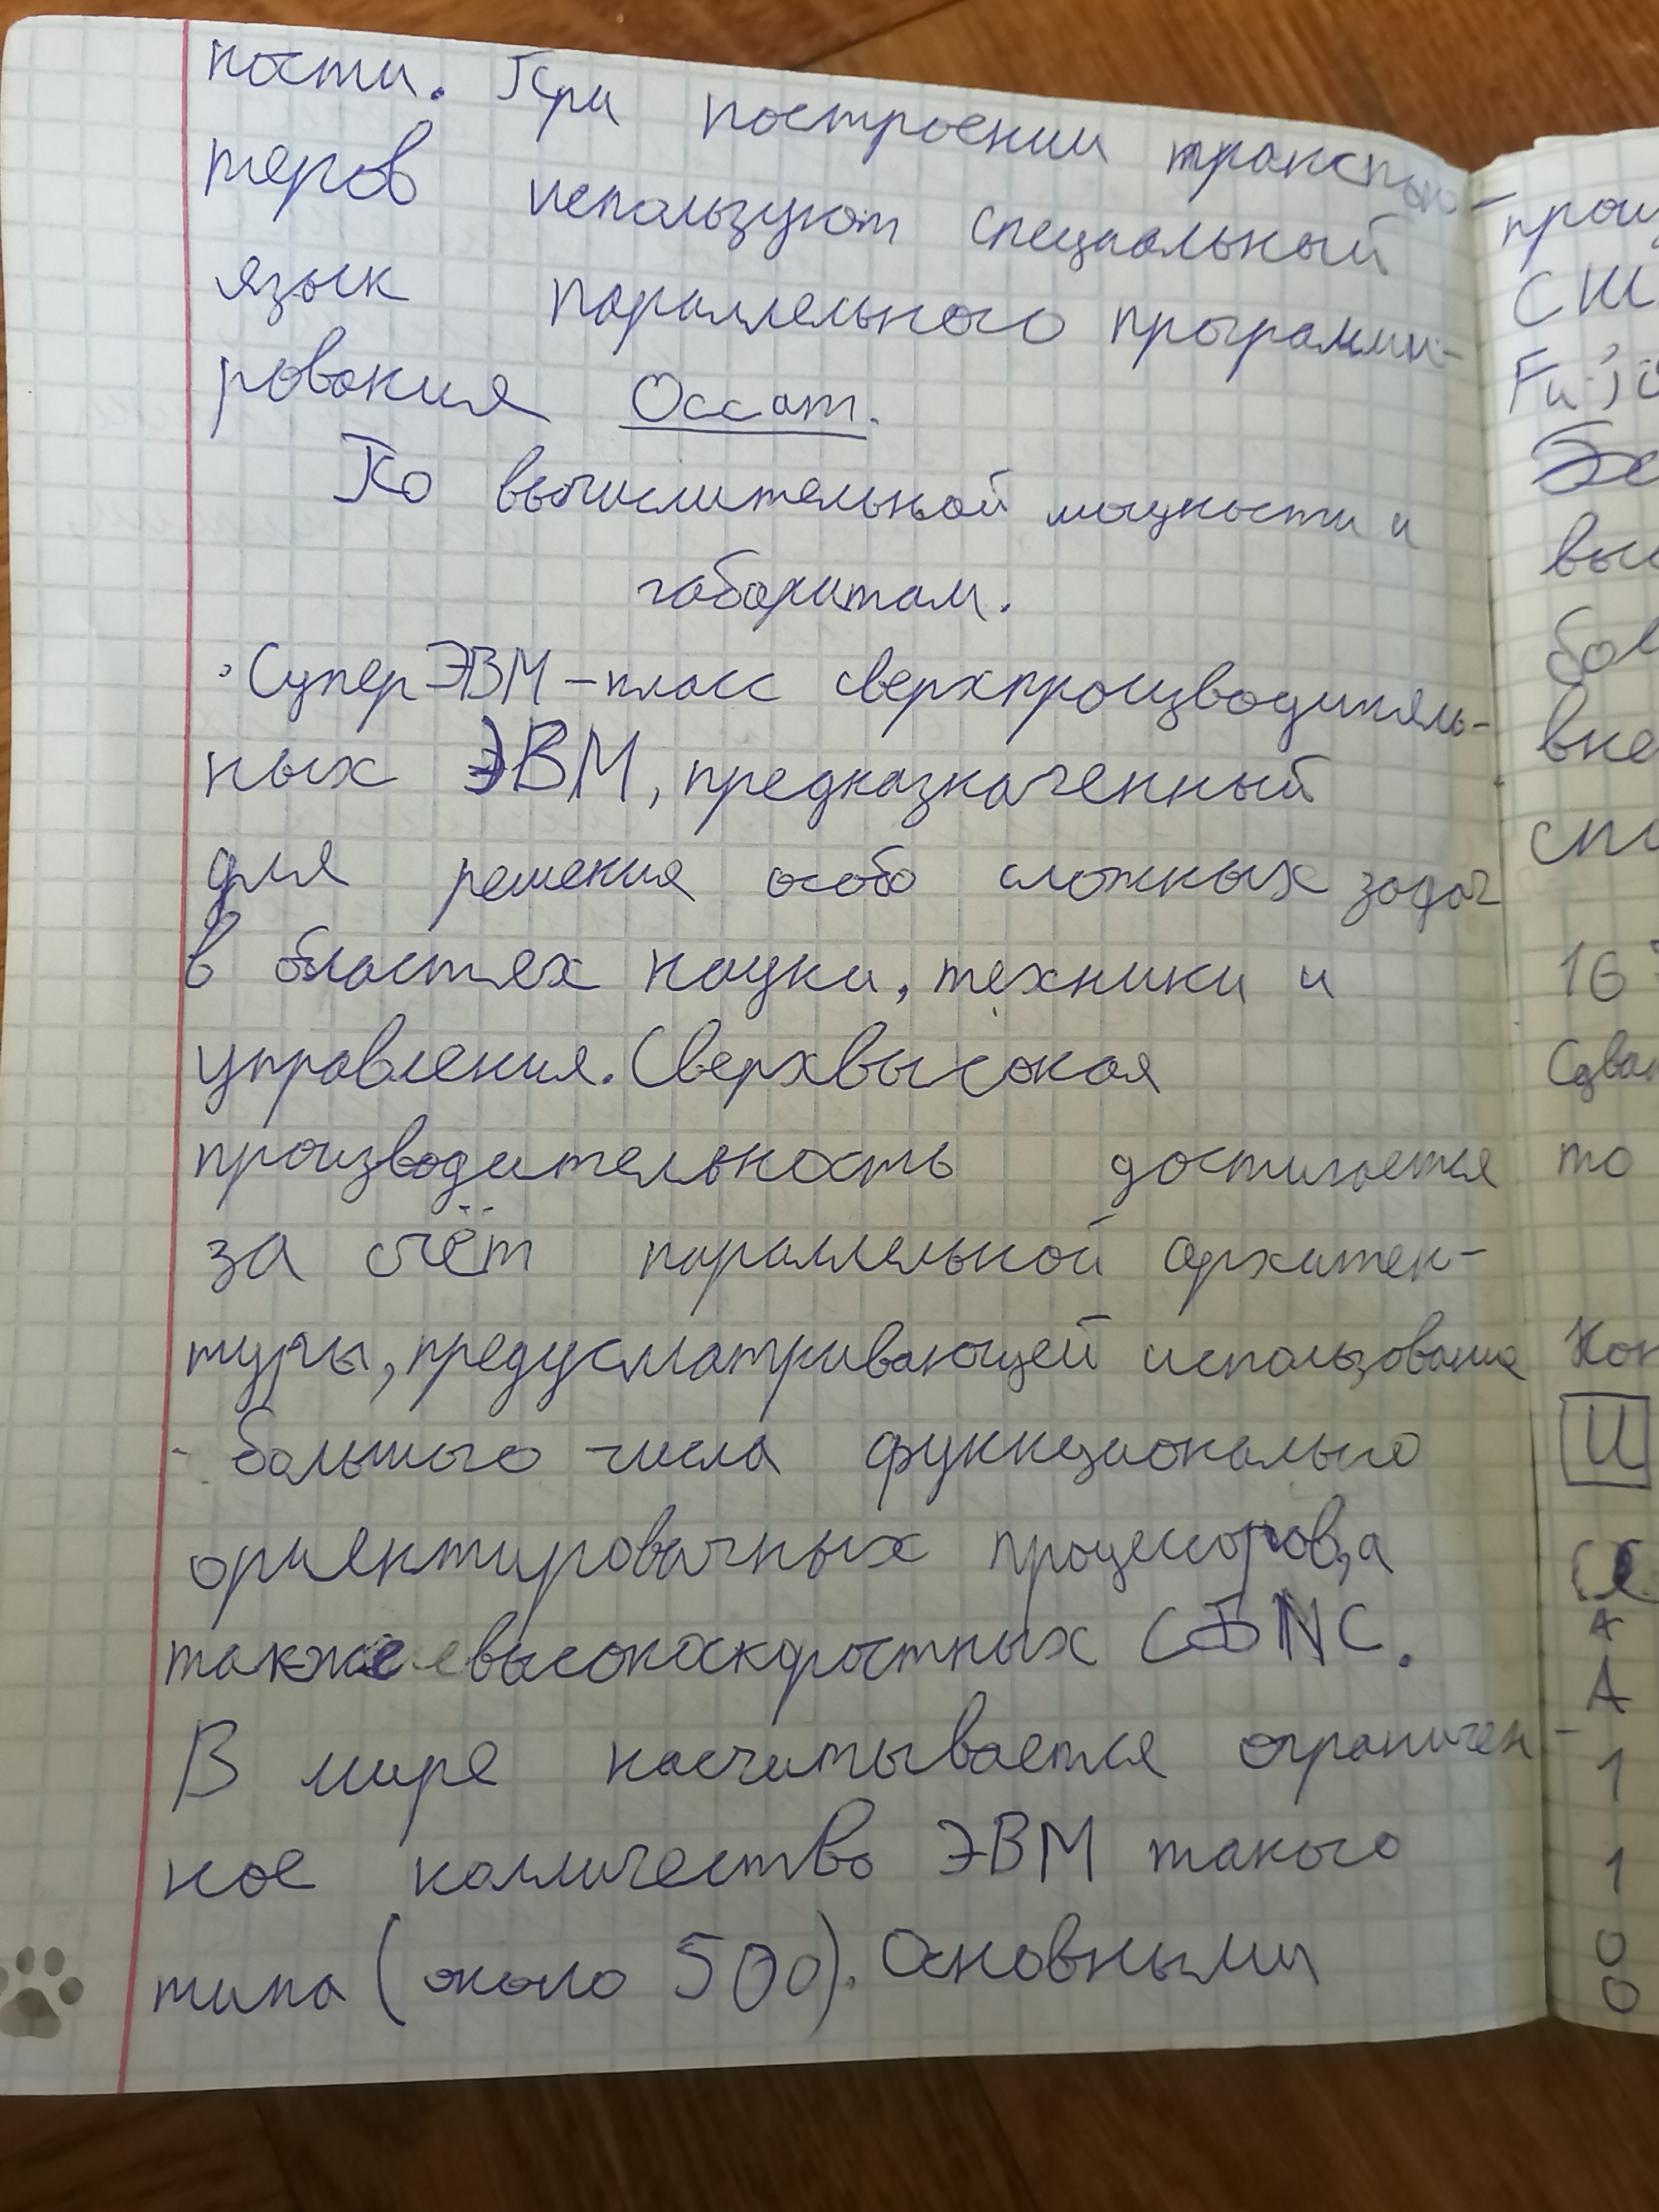 ности. При построении транспью-
теров используют специальный
язык параллельного программи-
рования Occam.
По вычислительной мощности и
габаритам.
· Супер ЭВМ – класс сверхпроизводитель-
ных ЭВМ, предназначенный
для решения особо сложных задач
в областях науки, техники и
управления. Сверхвысокая
производительность достигается
за счёт параллельной архитек-
туры, предусматривающей использование
большого числа функционально
ориентировачных процессоров, а
также высокоскоростных
В мире насчитывается ограничен-
ное колличество ЭВМ такого
типа (около 500). Основными
сши
Fuji
16
то
И
А
1
1
0
0